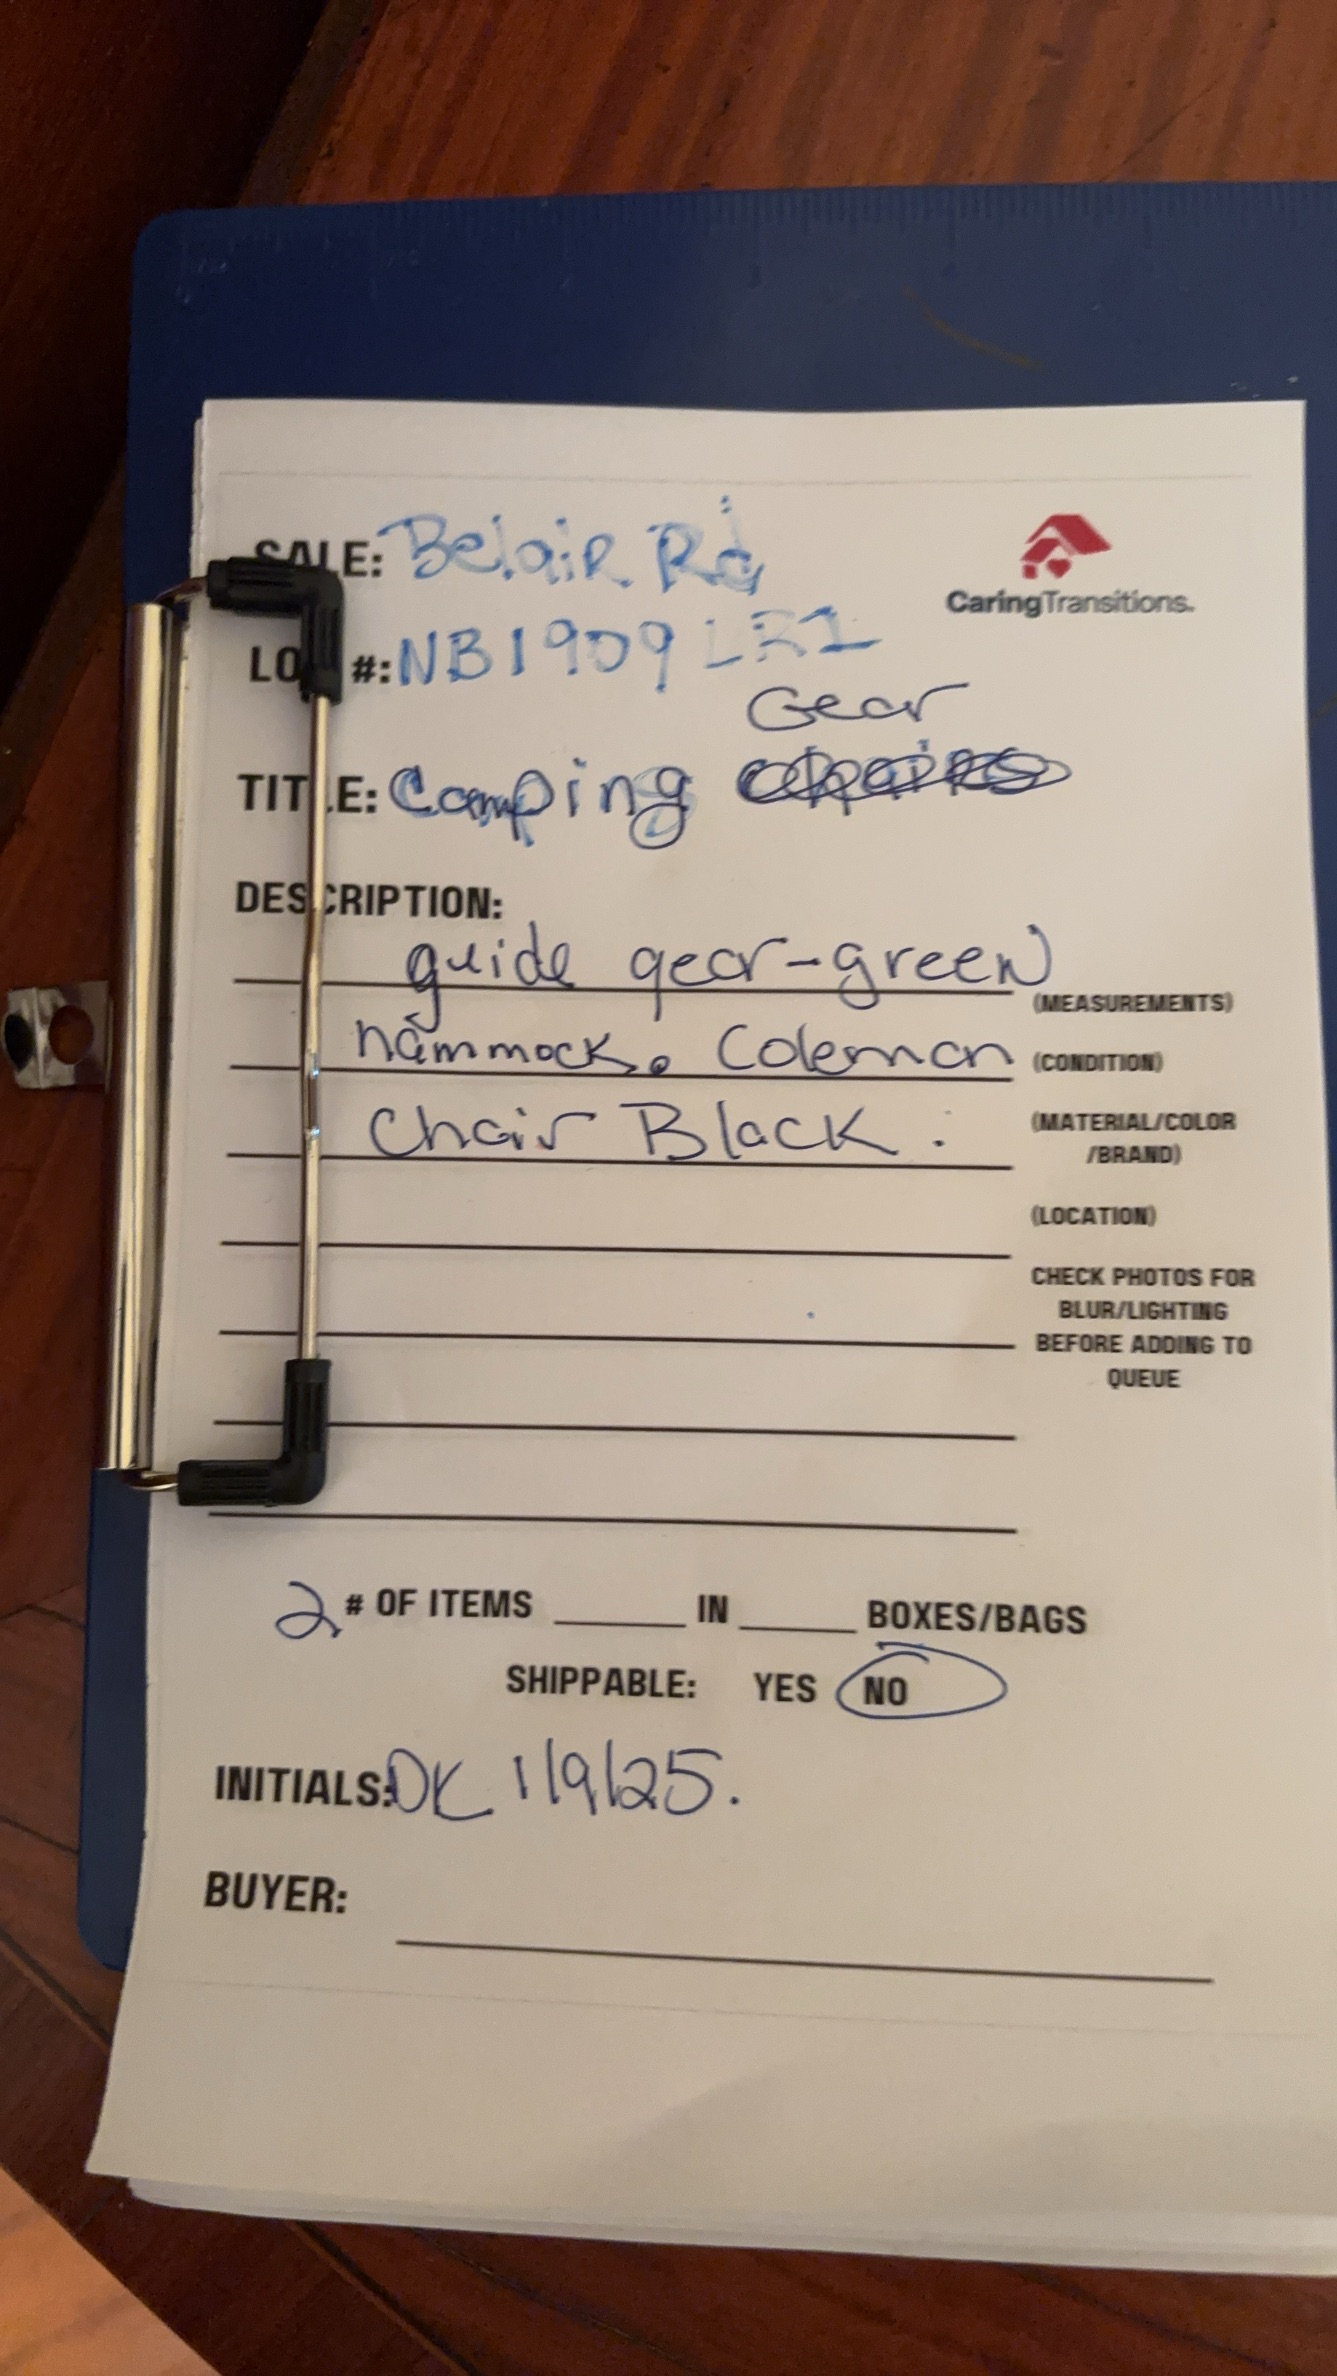 SALE: Belair Rd
CaringTransitions.
LOT #: NB1909 LR1
Gear
TITLE: Camping
DESCRIPTION:
guide gear-green
(MEASUREMENTS)
hammock. Coleman
(CONDITION)
Chair Black.
(MATERIAL/COLOR
/BRAND)
(LOCATION)
CHECK PHOTOS FOR
BLUR/LIGHTING
BEFORE ADDING TO
QUEUE
2 # OF ITEMS ______ IN ______ BOXES/BAGS
SHIPPABLE: YES NO
INITIALS: DK 1/9/25.
BUYER: